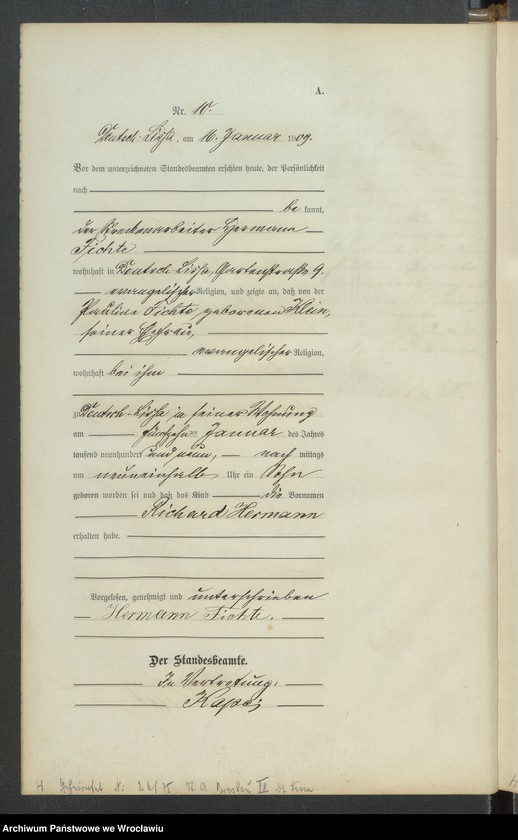 A.
Nr. 10.
Deutsch-Lissa, am 16. Januar 1909.
Vor dem unterzeichneten Standesbeamten erschien heute, der Persönlichkeit
nach
be kannt,
der Streckenarbeiter Hermann
Fichte
wohnhaft in Deutsch-Lissa, Gartenstraße 9.
evangelischer Religion, und zeigte an, daß von der
Pauline Fichte, geborenen Klein,
seiner Ehefrau,
evangelischer Religion,
wohnhaft bei ihm
zu Deutsch-Lissa in seiner Wohnung
am fünfzehn Januar des Jahres
tausend neunhundert und neun, nach mittags
um neuneinhalb Uhr ein Sohn
geboren worden sei und daß das Kind die Vornamen
Richard Hermann
erhalten habe.
Vorgelesen, genehmigt und unterschrieben
Hermann Fichte.
Der Standesbeamte.
In Vertretung.
H Geheiratet N: St. A. Breslau Dt. Lissa
Archiwum Państwowe we Wrocławiu